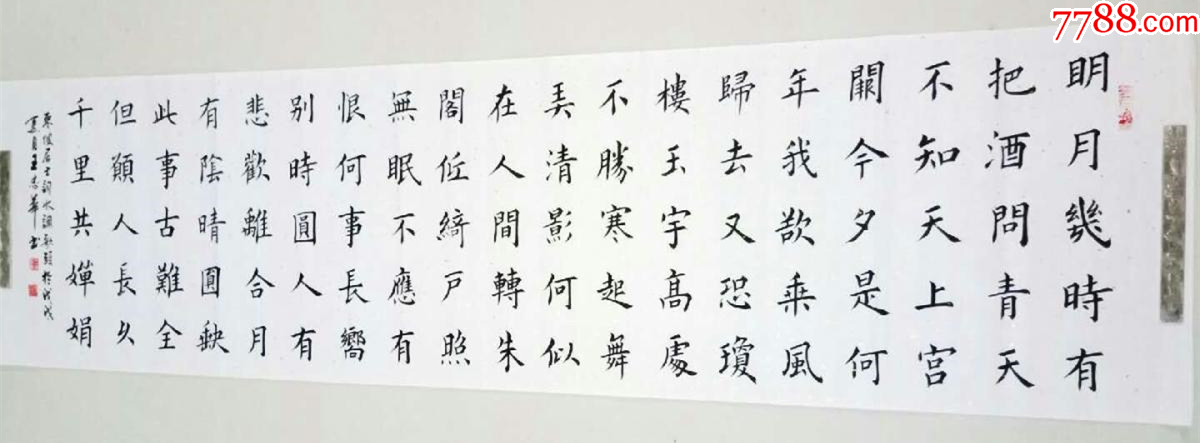 明月幾時有
把酒問青天
不知天上宮
闕今夕是何
年我欲乘風
歸去又恐瓊
樓玉宇高處
不勝寒起舞
弄清影何似
在人間轉朱
閣低綺户照
無眠不應有
恨何事長嚮
别時圓人有
悲歡離合月
有陰晴圓缺
此事古難全
但願人長久
千里共嬋娟
東坡居士詞水調歌頭於戊戌
夏月王志華書
7788.com